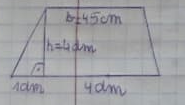 b=45cm
h=4dm
1dm 4dm